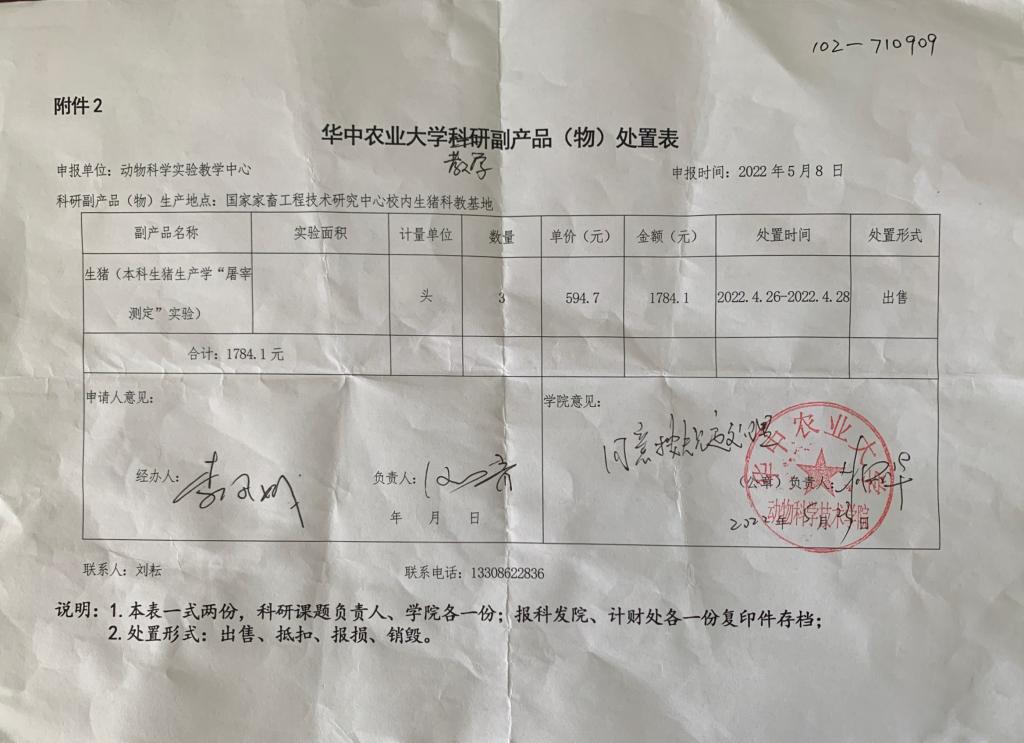 102-710909
附件2
华中农业大学科研副产品（物）处置表
教学
申报单位：动物科学实验教学中心 申报时间：2022年5月8日
科研副产品（物）生产地点：国家家畜工程技术研究中心校内生猪科教基地
副产品名称 实验面积 计量单位 数量 单价（元） 金额（元） 处置时间 处置形式
生猪（本科生猪生产学“屠宰
测定”实验） 头 3 594.7 1784.1 2022.4.26-2022.4.28 出售
合计：1784.1元
申请人意见： 学院意见：
同意按规定处理
华中农业大学
经办人： 负责人： （公章）负责人：
动物科学技术学院
年 月 日 2022年5月 日
联系人：刘耘 联系电话：13308622836
说明：1.本表一式两份，科研课题负责人、学院各一份；报科发院、计财处各一份复印件存档；
2.处置形式：出售、抵扣、报损、销毁。